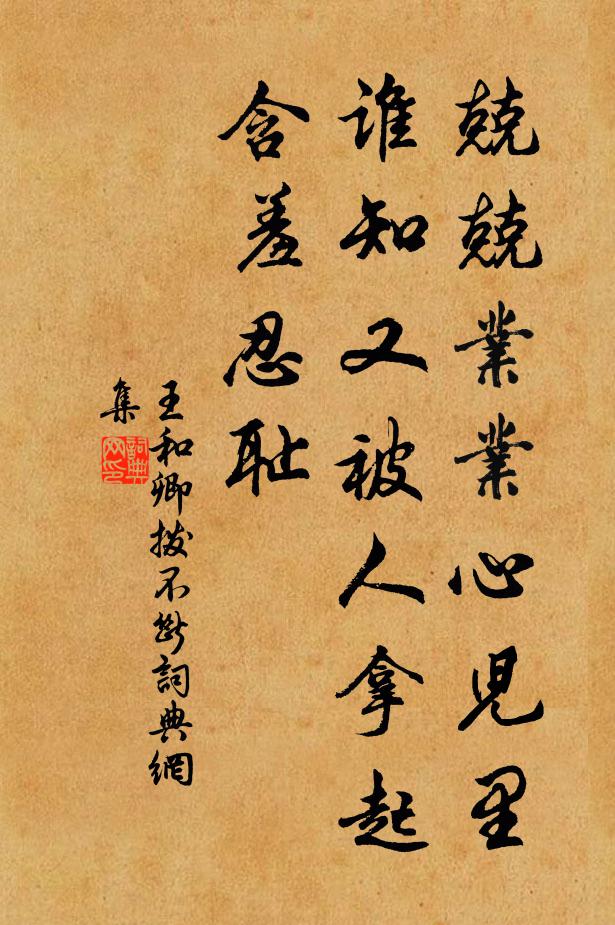 兢兢業業心児里
誰知又被人拿起
含羞忍耻
王和卿撥不斷詞典網
集
詞典网印